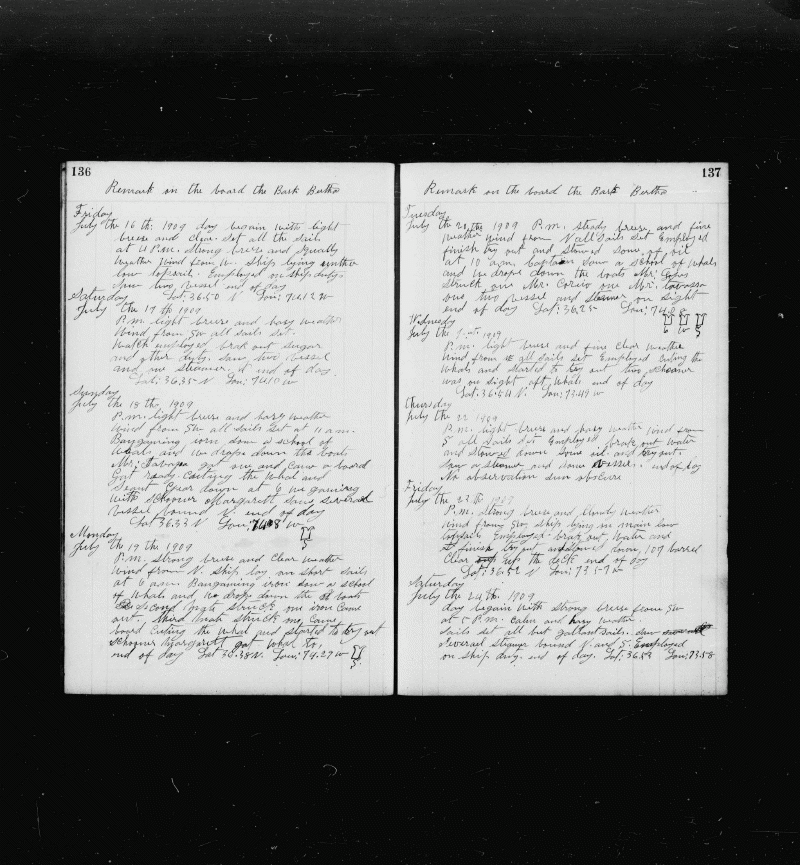 136
Remark on the board the Bark Bertha
Friday
July the 16th 1909 day begain with light
breeze and clear set all the sails
at 4 P.m. strong breeze and squally
weather Wind from W. Ship lying under
low topsail. Employed on ship dutys
saw two vessel end of day
Saturday Lat; 36.50 N. Lon; 74.12 W
July the 17th 1909
P.m. light breeze and hazy weather
Wind from SW all sails set.
Watch employed brok out sugar
and other dutys. saw two vessel
and one steamer. end of day
Lat; 36.35 N Lon; 74.10 W
Sunday
July the 18th 1909
P.m. light breeze and hazy weather
Wind from SW all sails set at 11 am.
saw a school of
Whals and we drope down the boats
Mr; got one and came a board
Got ready Cutting the Whal and
Gear down at 6 we gaming
With schooner Margarett saw severael
Vessel bound N. end of day
Lat 36.33 N Lon; W
Monday
July the 19th 1909
P.m. strong breeze and clear weather
Wind from N ship lay on short sails
at 6 a.m. saw a school
of Whals and we drope down the boats
Second mate struck one iron came
out. third mate struck one came
bord Cutting the Whal and started to try out
schooner Margarett got Whal to,
end of day Lat 36.38 N. Lon; 74.27 W
137
Remark on the board the Bark Bertha
Tuesday
July the 20th 1909 P.m. steady breeze and fine
weather Wind from N all sails set Employed
finish try out and stowed some of oil
at 10 a.m. Captain saw a school of whals
and we drope down the boats Mr; Lopes
struck one Mr. one Mr.
one, two vessel and steamer on sight
end of day Lat; 36.25 Lon;
Wednesdy
July the
P.m. light breeze and fine clear Weather
Wind from all sails set Employed Cuting the
Whals and started to try out two schooner
was on sight aft Whals end of day
Lat. 36.54 N. Lon; 73.49 W
Thursday
July the 22 1909
P.m. light breeze and hazy weather Wind from
S all sails set Employed brak out Water
and stowed down some oil and try out.
Saw a steamer and some vessel. end of day
No observation sun obscure
Friday
July the 23th
P.m. strong breeze and cloudy Weather
Wind from SW ship lying in main low
topsails Employed brak out Water and
finish try out down, 107 barrel
Clear up the deck end of day
Lat; 36.52 N Lon; 73.57 W
Saturday
July the 24th, 1909
day begain with strong breeze from SW
at 5 P.m. calm and hazy Weather.
Sails set all but gallantsails. saw
severael steamer bound N. and S. Employed
on ship duty. end of day. Lat; 36.53 Lon; 73.58